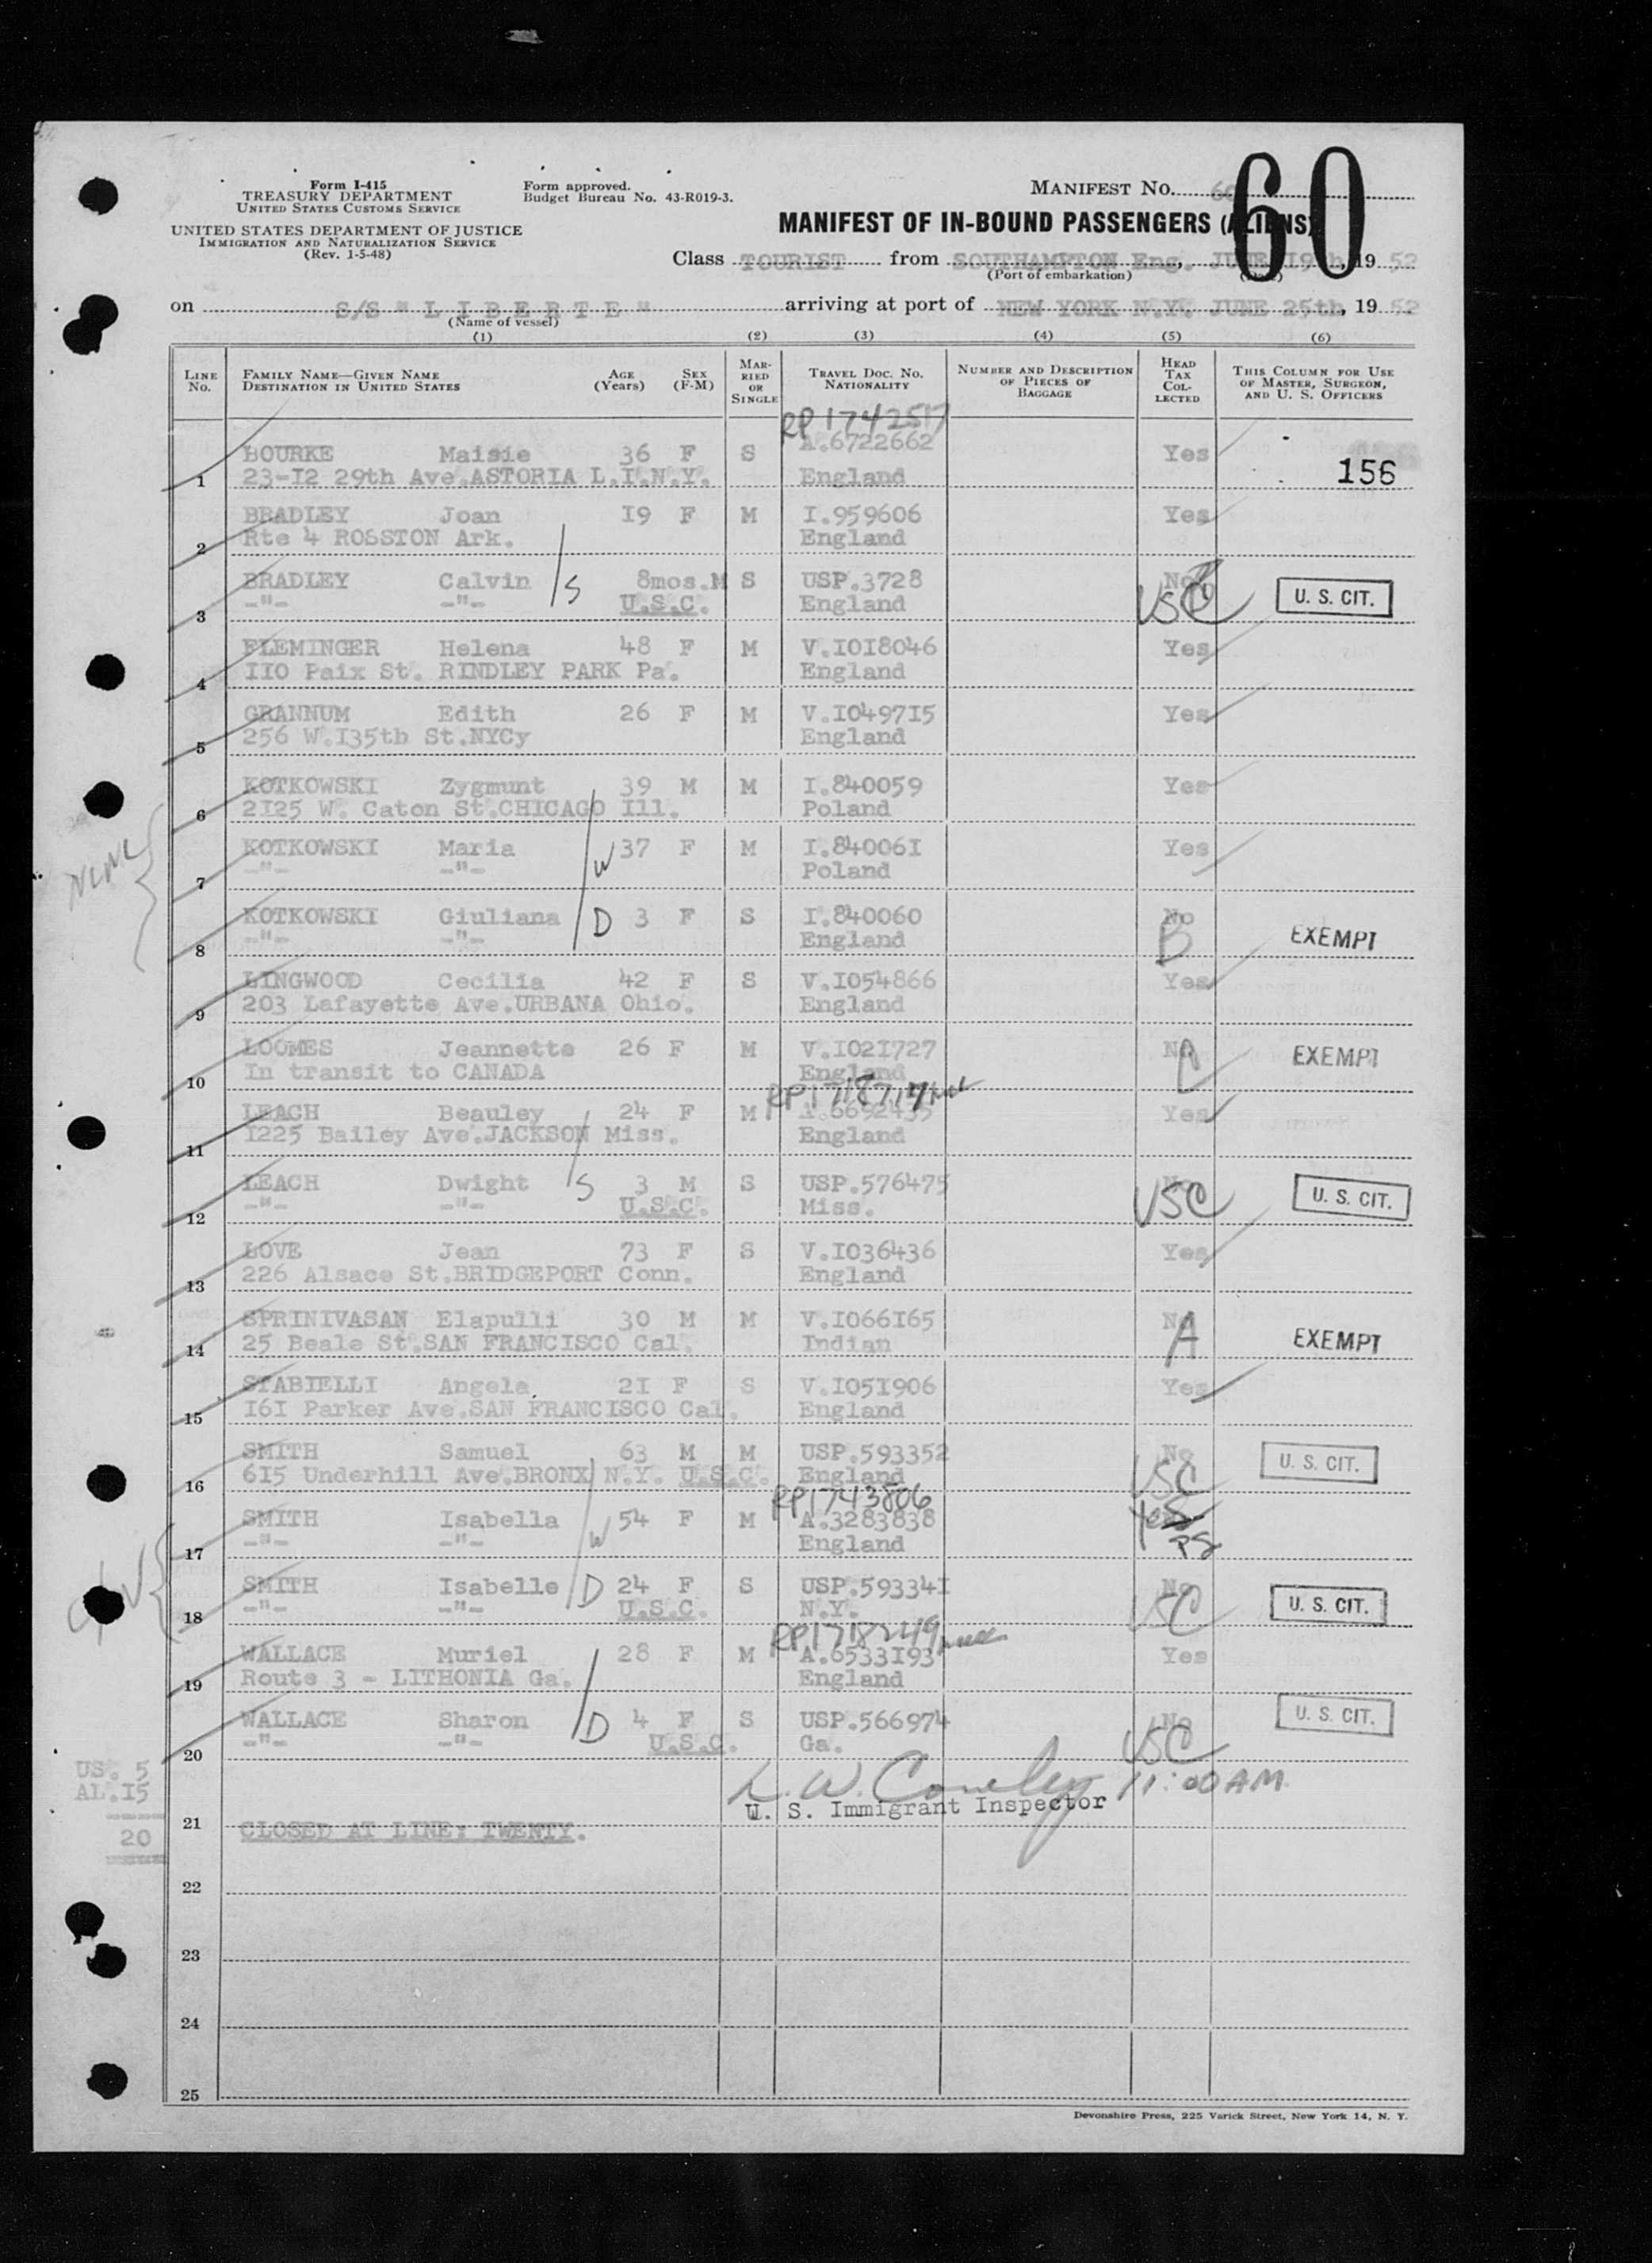 Form I-415
TREASURY DEPARTMENT
UNITED STATES CUSTOMS SERVICE
UNITED STATES DEPARTMENT OF JUSTICE
IMMIGRATION AND NATURALIZATION SERVICE
(Rev. 1-5-48)
Form approved.
Budget Bureau No. 43-R019-3.
MANIFEST NO. 60
60
MANIFEST OF IN-BOUND PASSENGERS (ALIENS)
Class TOURIST from SOUTHAMPTON Eng. JUNE 19th, 19 52
(Port of embarkation)
on S/S " L I B E R T E " arriving at port of NEW YORK N.Y. JUNE 25th, 19 52
(Name of vessel)
(1) (2) (3) (4) (5) (6)
LINE No. FAMILY NAME—GIVEN NAME DESTINATION IN UNITED STATES AGE (Years) SEX (F-M) MARRIED OR SINGLE TRAVEL DOC. NO. NATIONALITY NUMBER AND DESCRIPTION OF PIECES OF BAGGAGE HEAD TAX COLLECTED THIS COLUMN FOR USE OF MASTER, SURGEON, AND U. S. OFFICERS
RP 1742517
BOURKE Maisie 36 F S A.6722662 Yes
1 23-I2 29th Ave.ASTORIA L.I.N.Y. England 156
BRADLEY Joan I9 F M I.959606 Yes
2 Rte 4 ROSSTON Ark. England
BRADLEY Calvin /S 8mos.M S USP.3728 No USC U. S. CIT.
3 -"- -"- U.S.C. England
FLEMINGER Helena 48 F M V.I0I8046 Yes
4 II0 Paix St. RINDLEY PARK Pa. England
GRANNUM Edith 26 F M V.I0497I5 Yes
5 256 W.I35th St.NYCy England
KOTKOWSKI Zygmunt 39 M M I.840059 Yes
6 2I25 W. Caton St.CHICAGO Ill. Poland
KOTKOWSKI Maria /W 37 F M I.84006I Yes
7 -"- -"- Poland
KOTKOWSKI Giuliana /D 3 F S I.840060 No B EXEMPT
8 -"- -"- England
LINGWOOD Cecilia 42 F S V.I054866 Yes
9 203 Lafayette Ave.URBANA Ohio. England
LOOMES Jeannette 26 F M V.I02I727 No C EXEMPT
10 In transit to CANADA England
LEACH Beauley 24 F M A.6692435 Yes
11 I225 Bailey Ave.JACKSON Miss. England
LEACH Dwight /S 3 M S USP.576475 No USC U. S. CIT.
12 -"- -"- U.S.C. Miss.
LOVE Jean 73 F S V.I036436 Yes
13 226 Alsace St.BRIDGEPORT Conn. England
SPRINIVASAN Elapulli 30 M M V.I066I65 No A EXEMPT
14 25 Beale St.SAN FRANCISCO Cal. Indian
STABIELLI Angela 2I F S V.I05I906 Yes
15 I6I Parker Ave.SAN FRANCISCO Cal. England
SMITH Samuel 63 M M USP.593352 No USC U. S. CIT.
16 6I5 Underhill Ave.BRONX N.Y. U.S.C. England
RP1743806
SMITH Isabella /W 54 F M A.3283838 Yes
17 -"- -"- England
SMITH Isabelle /D 24 F S USP.59334I No USC U. S. CIT.
18 -"- -"- U.S.C. N.Y.
RP1718249
WALLACE Muriel 28 F M A.6533I93 Yes
19 Route 3 - LITHONIA Ga. England
WALLACE Sharon /D 4 F S USP.566974 No USC U. S. CIT.
20 -"- -"- U.S.C. Ga.
US. 5
AL.I5
20
11:00 AM
U. S. Immigrant Inspector
21 CLOSED AT LINE: TWENTY.
22
23
24
25
Devonshire Press, 225 Varick Street, New York 14, N. Y.